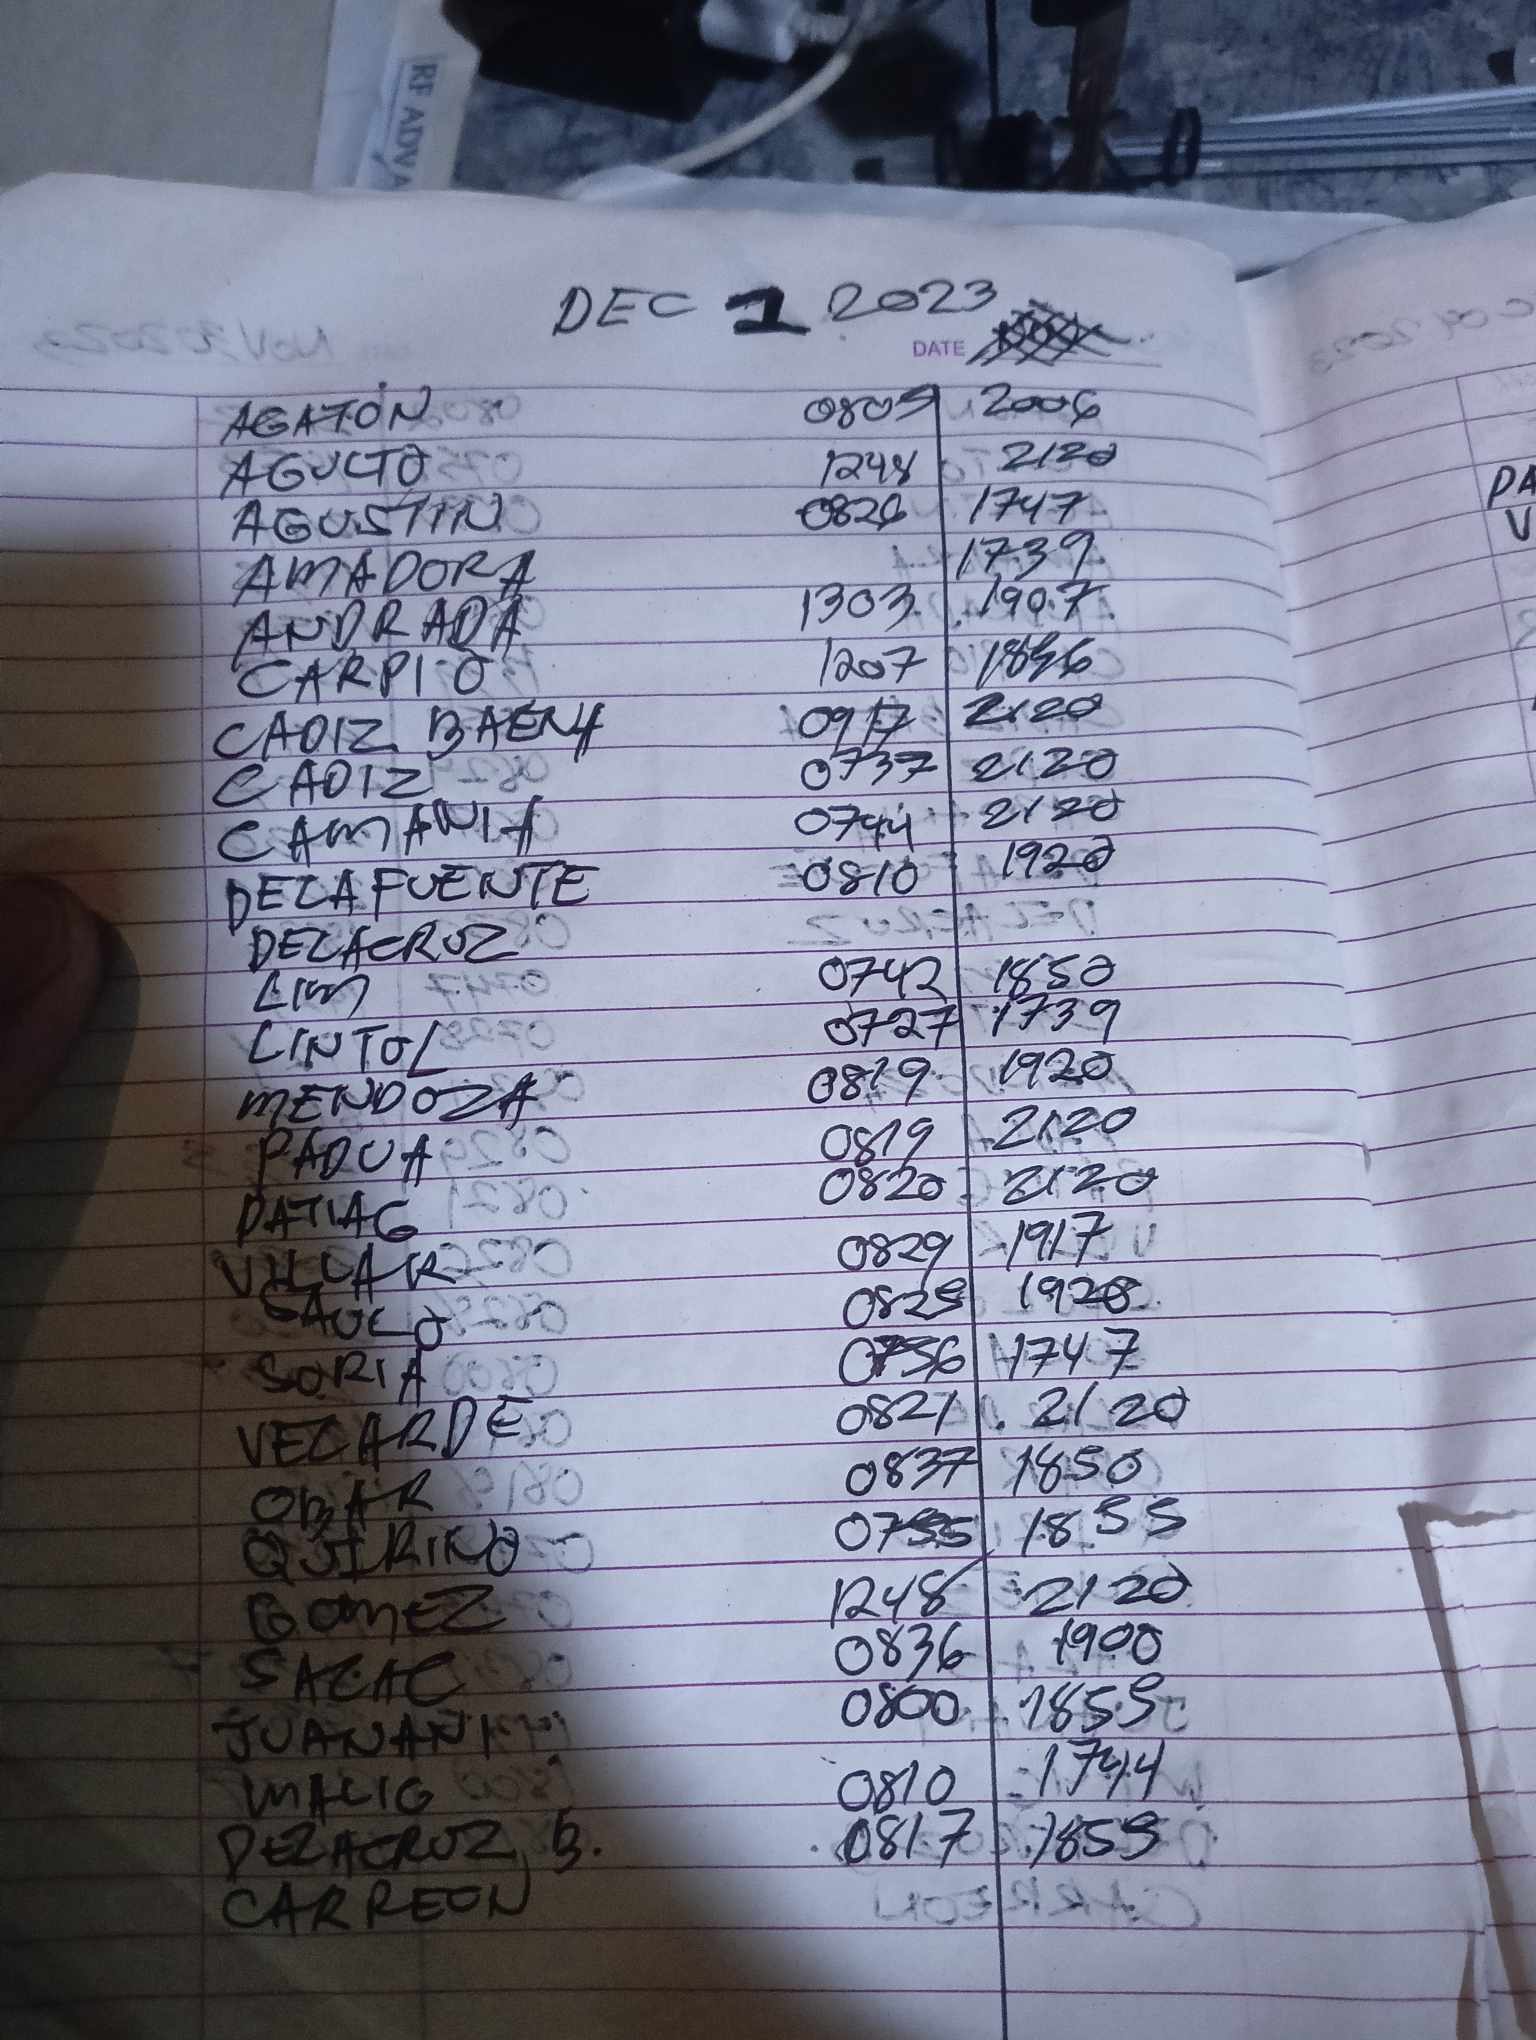 RF ADVA
DEC 1 2023
DATE
AGATON 0805 2006
AGULTO 1248 2120
AGUSTIN 0826 1747
AMADORA 1739
ANDRADA 1303 1907
CARPIO 1207 1856
CADIZ BAENA 0917 2120
CADIZ 0737 2120
CAMANIA 0744 2120
DELAFUENTE 0810 1920
DELACRUZ
LIM 0742 1850
LINTOL 0727 1739
MENDOZA 0819 1920
PADUA 0819 2120
DATIAG 0820 2120
VILLAR 0829 1917
SAULO 0825 1928
SORIA 0756 1747
VELARDE 0821 2120
OBAR 0837 1850
QUIRINO 0755 1855
GOMEZ 1248 2120
SALAC 0836 1900
JUANANI 0800 1855
MALIG 0810 1744
DELACRUZ, B. 0817 1855
CARREON
PA
V